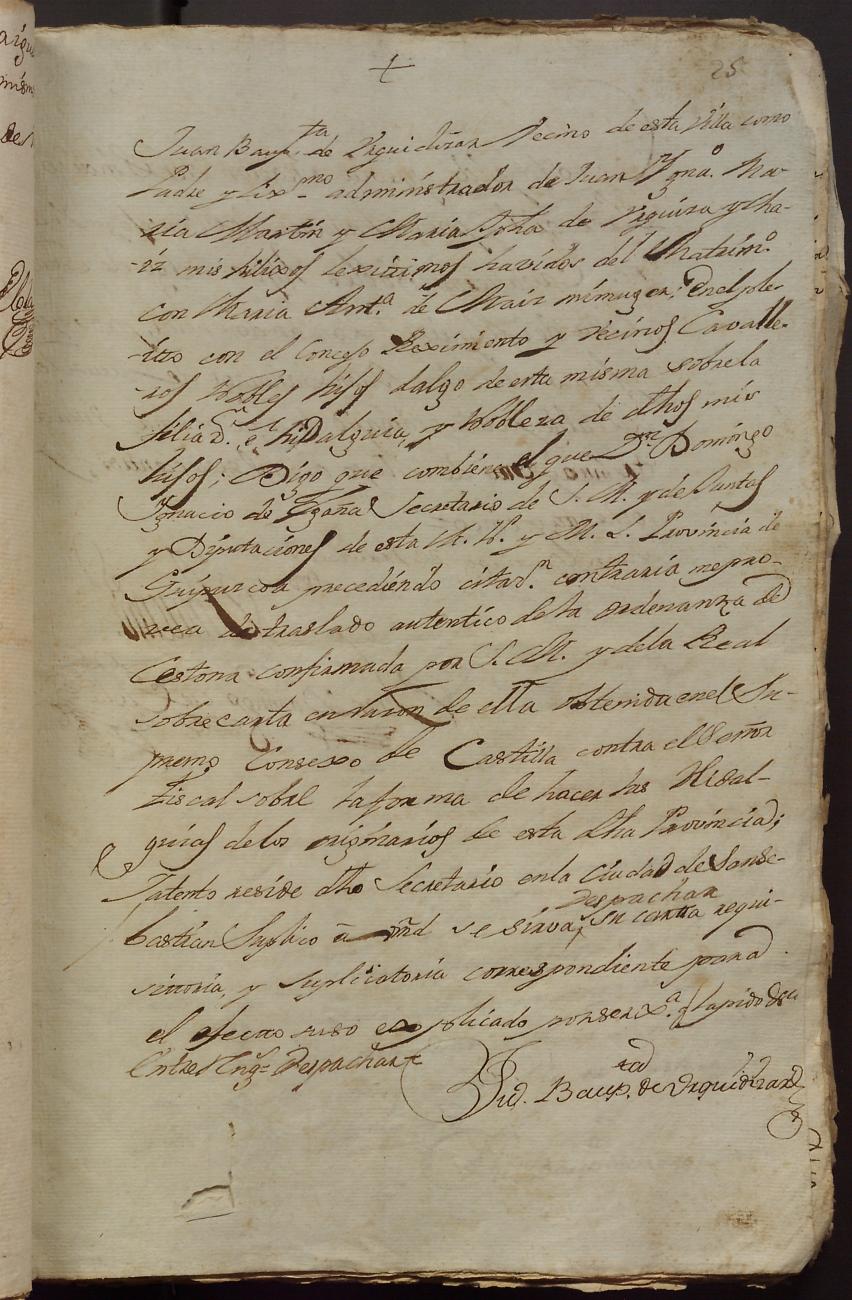 + 25
Juan Baup.ta de Urquidizar Vecino de esta Villa como
Padre y lex.mo administrador de Juan Ygna.o Ma-
ria Martin y Maria Jpha de
-iz mis hijos lexitimos havidos del Matrim.o
con Maria Ant.a de Maiz mi muger; En el ple-
-ito con el Concejo Reximiento y vecinos Cavalle-
ros Nobles hijos dalgo de esta misma sobre la
filiac.n e hidalguia, y Nobleza de dhos mis
hijos; Digo que combiene el que D.n Domingo
Ignacio de Egaña Secretario de S. M. y de Juntas
y Diputaciones de esta M. N. y M. L. Provincia de
Guipuzcoa precediendo citaz.n contraria me pro-
vea de traslado autentico de la ordenanza de
Cestona confirmada por S. M. y de la Real
sobrecarta en razon de ella obtenida en el Su-
premo Consexo de Castilla contra el Señor
Fiscal sobre la forma de hacer las Hidal-
guias de los originarios de esta dha Provincia;
Iatento reside dho Secretario en la Ciudad de Sanse-
bastian Suplico a vmd se sirva, despachar su carta requi-
sitoria, y suplicatoria correspondiente para
el efecto suso explicado por ser Jx.a q.e la pido &.a
Entre Reng.s Despachar
Ju.o Baup.ta de Urquidizar